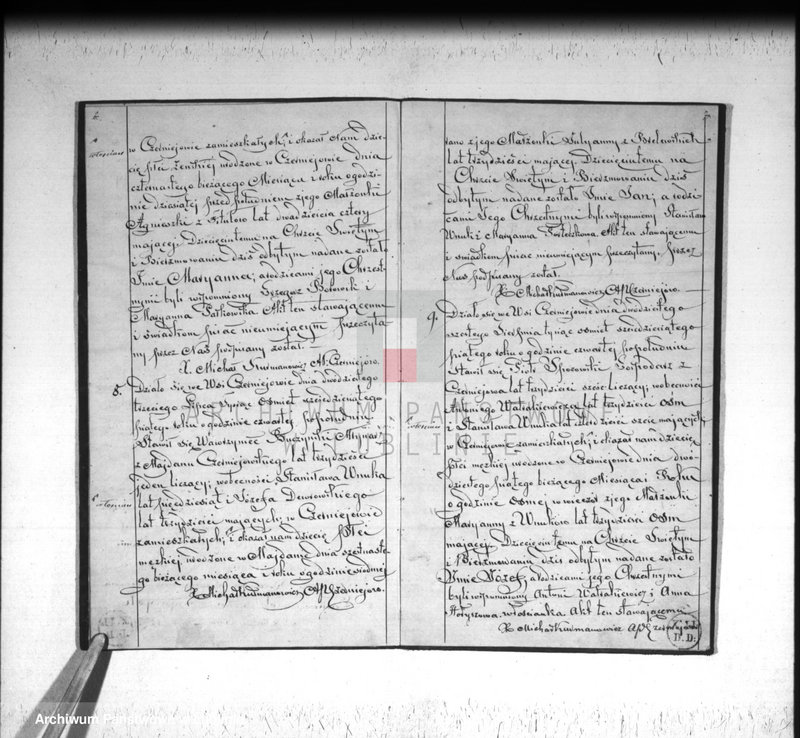 w Czerniejowie zamieszkałych, i okazał Nam dzie-
cię płci żeńskiej urodzone w Czerniejowie dnia
czternastego bieżącego Miesiąca i roku o godzi-
nie dziesiątej przed południem z jego Małżonki
Agnieszki z lat dwadzieścia cztery
mającej. Dziecięciu temu na Chrzcie Świętym
i Bierzmowaniu dziś odbytym nadane zostało
Imie Maryanna, a rodzicami jego Chrzest-
nymi byli wspomniony Grzegorz i
Maryanna Akt ten stawającemu
i świadkom pisać nieumiejącym przeczyta-
ny przez Nas podpisany został.—
X. Michał Kurmanowicz
8.
Działo się we Wsi Czerniejowie dnia dwudziestego
trzeciego Lipca tysiąc ośmset sześćdziesiątego
piątego roku o godzinie czwartej popołudniu.
Stawił się Wawrzyniec
z Majdanu Czerniejowskiego lat trzydzieści
jeden liczący, w obecności Stanisława Wnuka
lat pięćdziesiąt i Józefa
lat trzydzieści mających, w Czerniejowie
zamieszkałych, i okazał nam dziecię płci
męzkiej urodzone w Majdanie dnia szesnaste-
go bieżącego miesiąca i roku o godzinie siódmej
X Michał Kurmanowicz
rano z jego Małżonki Julyanny z
lat trzydzieści mającej. Dziecięciu temu na
Chrzcie Świętym i Bierzmowaniu dziś
odbytym nadane zostało Imie Jan, a rodzi-
cami Jego Chrzestnymi byli wspomniony Stanisław
Wnuk i Maryanna Akt ten stawającemu
i świadkom pisać nieumiejącym przeczytany, przez
Nas podpisany został.
X Michał Kurmanowicz
9.
Działo się we Wsi Czerniejowie dnia dwudziestego
szóstego Sierpnia tysiąc ośmset sześćdziesiątego
piątego roku o godzinie czwartej popołudniu
Stawił się Piotr Gospodarz z
Czerniejowa lat trzydzieści sześć liczący, w obecności
Antoniego Waliakiewicza lat trzydzieści ośm
i Stanisława Wnuka lat mających
w Czerniejowie zamieszkałych, i okazał nam dziecię
płci męzkiej urodzone w Czerniejowie dnia dwu-
dziestego piątego bieżącego Miesiąca i Roku
o godzinie ósmej w wieczór z jego Małżonki
Maryanny z Wnuków lat trzydzieści ośm
mającej. Dziecięciu temu na Chrzcie Świętym
i Bierzmowaniu dziś odbytym nadane zostało
Imie Józef, a rodzicami jego Chrzestnymi
byli wspomniony Antoni Waliakiewicz i Anna
włościanka Akt ten stawającemu
X Michał Kurmanowicz
ARCHIWUM PAŃSTWOWE
W LUBLINIE
Archiwum Państwowe